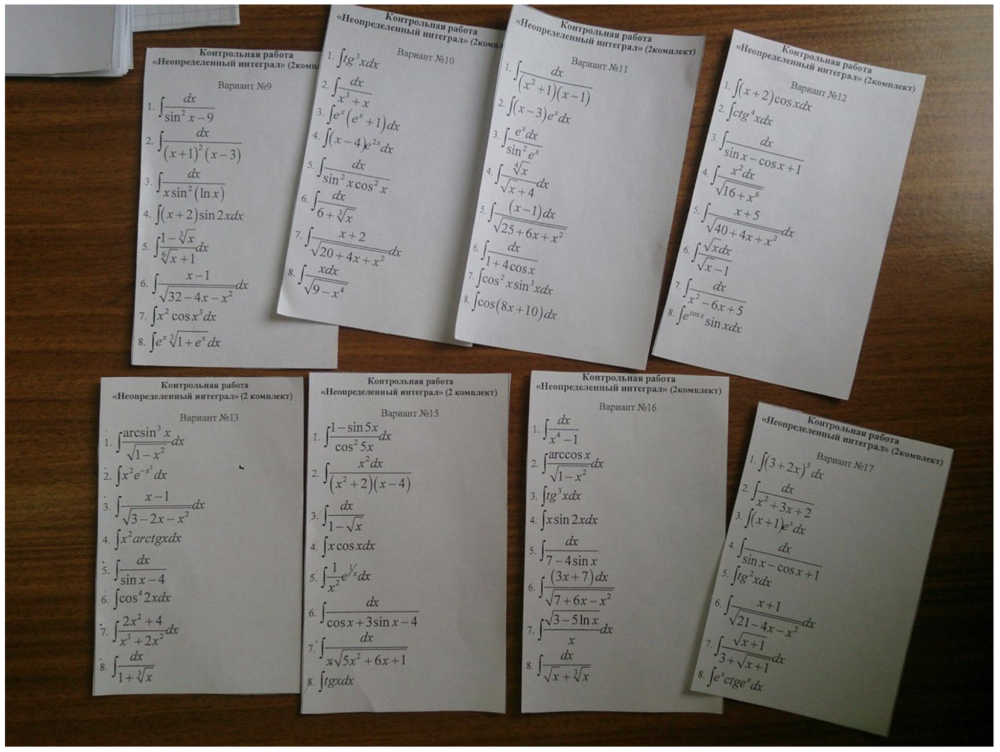 Контрольная работа
«Неопределенный интеграл» (2компл
Вариант №9
1. ∫ dx / (sin² x − 9)
2. ∫ dx / ((x+1)²(x−3))
3. ∫ dx / (x sin²(ln x))
4. ∫(x+2)sin 2xdx
5. ∫ (1−∛x) / (⁶√x+1) dx
6. ∫ (x−1) / √(32−4x−x²) dx
7. ∫x² cos x³dx
8. ∫eˣ ∛(1+eˣ) dx
Контрольная работа
«Неопределенный интеграл» (2комп
Вариант №10
1. ∫tg³xdx
2. ∫ dx / (x³+x)
3. ∫eˣ(eˣ+1)dx
4. ∫(x−4)e²ˣdx
5. ∫ dx / (sin² x cos² x)
6. ∫ dx / (6+∛x)
7. ∫ (x+2) / √(20+4x+x²) dx
8. ∫ xdx / √(9−x⁴)
Контрольная работа
«Неопределенный интеграл» (2комплект)
Вариант №11
1. ∫ dx / ((x²+1)(x−1))
2. ∫(x−3)eˣdx
3. ∫ eˣdx / sin² eˣ
4. ∫ ⁴√x / (√x+4) dx
5. ∫ (x−1)dx / √(25+6x+x²)
6. ∫ dx / (1+4cos x)
7. ∫cos² x sin³ xdx
8. ∫cos(8x+10)dx
Контрольная работа
«Неопределенный интеграл» (2комплект)
Вариант №12
1. ∫(x+2)cos xdx
2. ∫ctg⁴xdx
3. ∫ dx / (sin x−cos x+1)
4. ∫ x²dx / √(16+x⁶)
5. ∫ (x+5) / √(40+4x+x²) dx
6. ∫ √xdx / (√x−1)
7. ∫ dx / (x²−6x+5)
8. ∫e^(cos x) sin xdx
Контрольная работа
«Неопределенный интеграл» (2 комплект)
Вариант №13
1. ∫ arcsin³ x / √(1−x²) dx
2. ∫x²e^(−x³)dx
3. ∫ (x−1) / √(3−2x−x²) dx
4. ∫x²arctgxdx
5. ∫ dx / (sin x−4)
6. ∫cos⁴ 2xdx
7. ∫ (2x²+4) / (x³+2x²) dx
8. ∫ dx / (1+∛x)
Контрольная работа
«Неопределенный интеграл» (2 комплект)
Вариант №15
1. ∫ (1−sin 5x) / cos² 5x dx
2. ∫ x²dx / ((x²+2)(x−4))
3. ∫ dx / (1−√x)
4. ∫x cos xdx
5. ∫ 1/x² e^(1/x)dx
6. ∫ dx / (cos x+3sin x−4)
7. ∫ dx / (x√(5x²+6x+1))
8. ∫tgxdx
Контрольная работа
«Неопределенный интеграл» (2комплект)
Вариант №16
1. ∫ dx / (x⁴−1)
2. ∫ arccos x / √(1−x²) dx
3. ∫tg³xdx
4. ∫x sin 2xdx
5. ∫ dx / (7−4sin x)
6. ∫ (3x+7)dx / √(7+6x−x²)
7. ∫ √(3−5ln x) / x dx
8. ∫ dx / (√x+∛x)
Контрольная работа
«Неопределенный интеграл» (2комплект)
Вариант №17
1. ∫(3+2x)⁵dx
2. ∫ dx / (x²+3x+2)
3. ∫(x+1)eˣdx
4. ∫ dx / (sin x−cos x+1)
5. ∫tg²xdx
6. ∫ (x+1) / √(21−4x−x²) dx
7. ∫ √(x+1) / (3+√(x+1)) dx
8. ∫eˣctgeˣdx